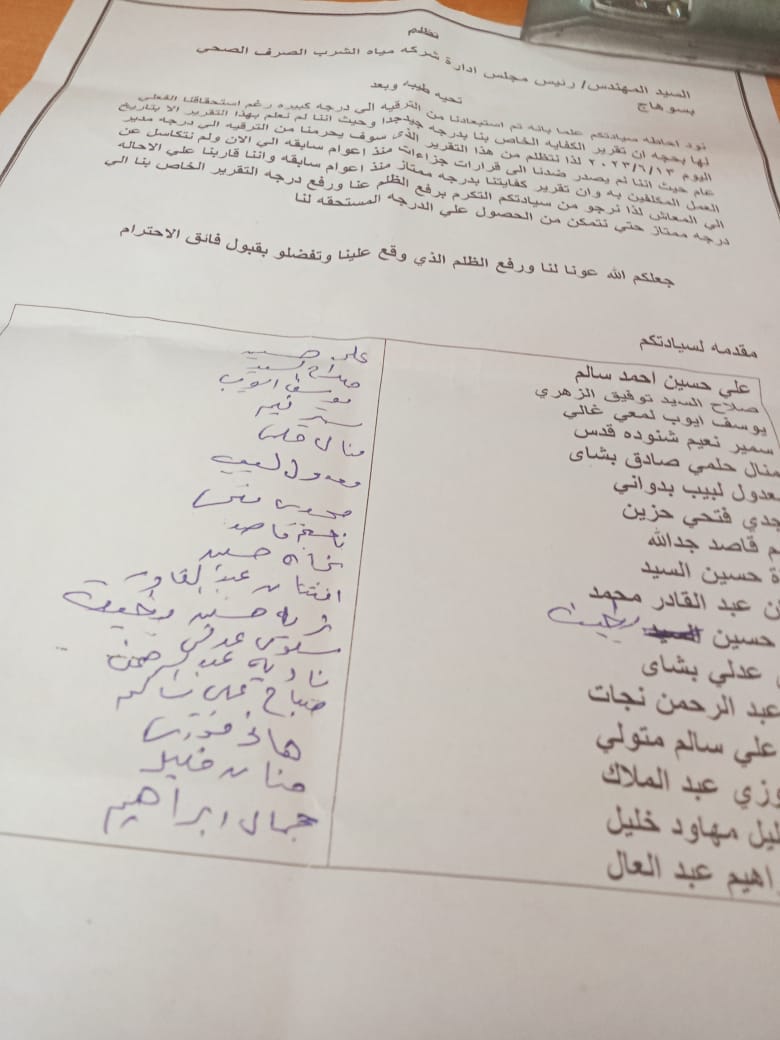 تظلم
السيد المهندس/ رئيس مجلس ادارة شركه مياه الشرب الصرف الصحي
بسوهاج
تحيه طيبه وبعد
نود احاطه سيادتكم علما بانه تم استبعادنا من الترقيه الي درجه كبيره رغم استحقاقنا الفعلي
لها بحجه ان تقرير الكفايه الخاص بنا بدرجه جيدجدا وحيث اننا لم نعلم بهذا التقرير الا بتاريخ
اليوم ٢٠٢٣/٦/١٣ لذا نتظلم من هذا التقرير الذى سوف يحرمنا من الترقيه الى درجه مدير
عام حيث اننا لم يصدر ضدنا الى قرارات جزاءات منذ اعوام سابقه الي الان ولم نتكاسل عن
العمل المكلفين به وان تقرير كفايتنا بدرجه ممتاز منذ اعوام سابقه واننا قاربنا علي الاحاله
الي المعاش لذا نرجو من سيادتكم التكرم برفع الظلم عنا ورفع درجه التقرير الخاص بنا الي
درجه ممتاز حتي نتمكن من الحصول علي الدرجه المستحقه لنا
جعلكم الله عونا لنا ورفع الظلم الذي وقع علينا وتفضلو بقبول فائق الاحترام
مقدمه لسيادتكم
علي حسين احمد سالم علي حسين
صلاح السيد توفيق الزهري صلاح السيد
يوسف ايوب لمعي غالي يوسف ايوب
سمير نعيم شنوده قدس سمير نعيم
منال حلمي صادق بشاى منال حلمى
معدول لبيب بدواني معدول لبيب
جدي فتحي حزين مجدى فتحى
م قاصد جدالله قاصد
ة حسين السيد نجاة حسين
ن عبد القادر محمد افتتان عبد القادر
حسين السيد بخيت حسين بخيت
عدلي بشاى سلوى عدلى
عبد الرحمن نجات نادية عبد الرحمن
علي سالم متولي صباح على سالم
وزي عبد الملاك هانى فوزى
ليل مهاود خليل حنان خليل
راهيم عبد العال جمال ابراهيم